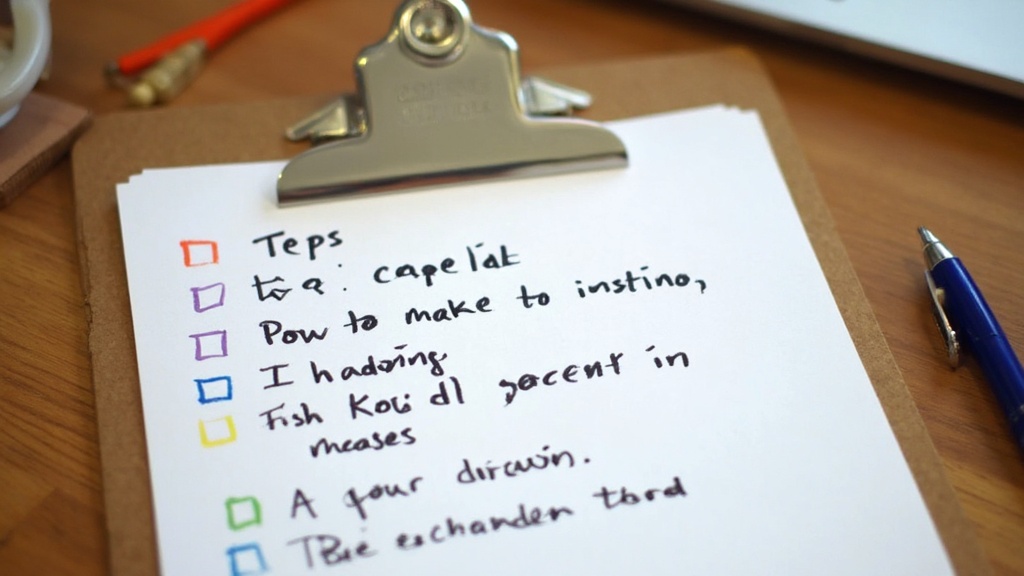 Teps
to a: capelat
Pow to make to instino,
I hadoing.
Fish Koui dl gocent in
meases
A your dircwin.
TBue exchanden tbrd